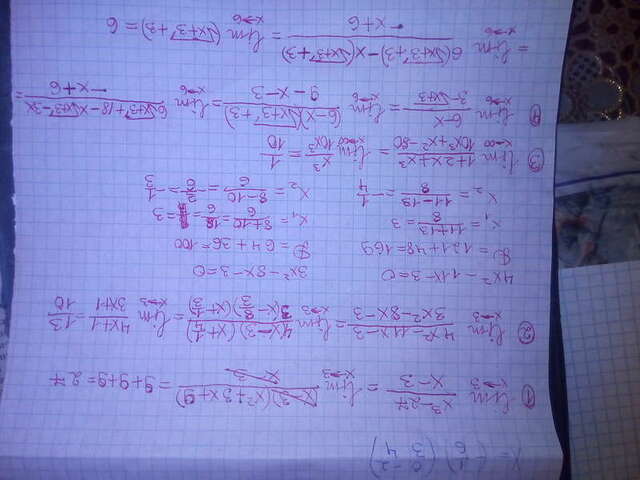 x = (1/6 0/3 -2/4)
① lim x→3 x³-27/x-3 = lim x→3 (x-3)(x²+3x+9)/x-3 = 9+9+9=27
② lim x→3 4x²-11x-3/3x²-8x-3 = lim x→3 4(x-3)(x+1/4)/3(x-3)(x+1/3) = lim x→3 4x+1/3x+1 = 13/10
4x²-11x-3=0 3x²-8x-3=0
D=121+48=169 D=64+36=100
x₁=11+13/8=3 x₁=8+10/6=18/6=3
x₂=11-13/8=-1/4 x₂=8-10/6=-2/6=-1/3
③ lim x→∞ 1+2x+x³/10x³+x²-80 = lim x→∞ x³/10x³ = 1/10
④ lim x→6 6-x/3-√x+3 = lim x→6 (6-x)(√x+3+3)/9-x-3 = lim x→6 6√x+3+18-x√x+3-3x/-x+6 =
= lim x→6 6(√x+3+3)-x(√x+3+3)/-x+6 = lim x→6 (√x+3+3)=6